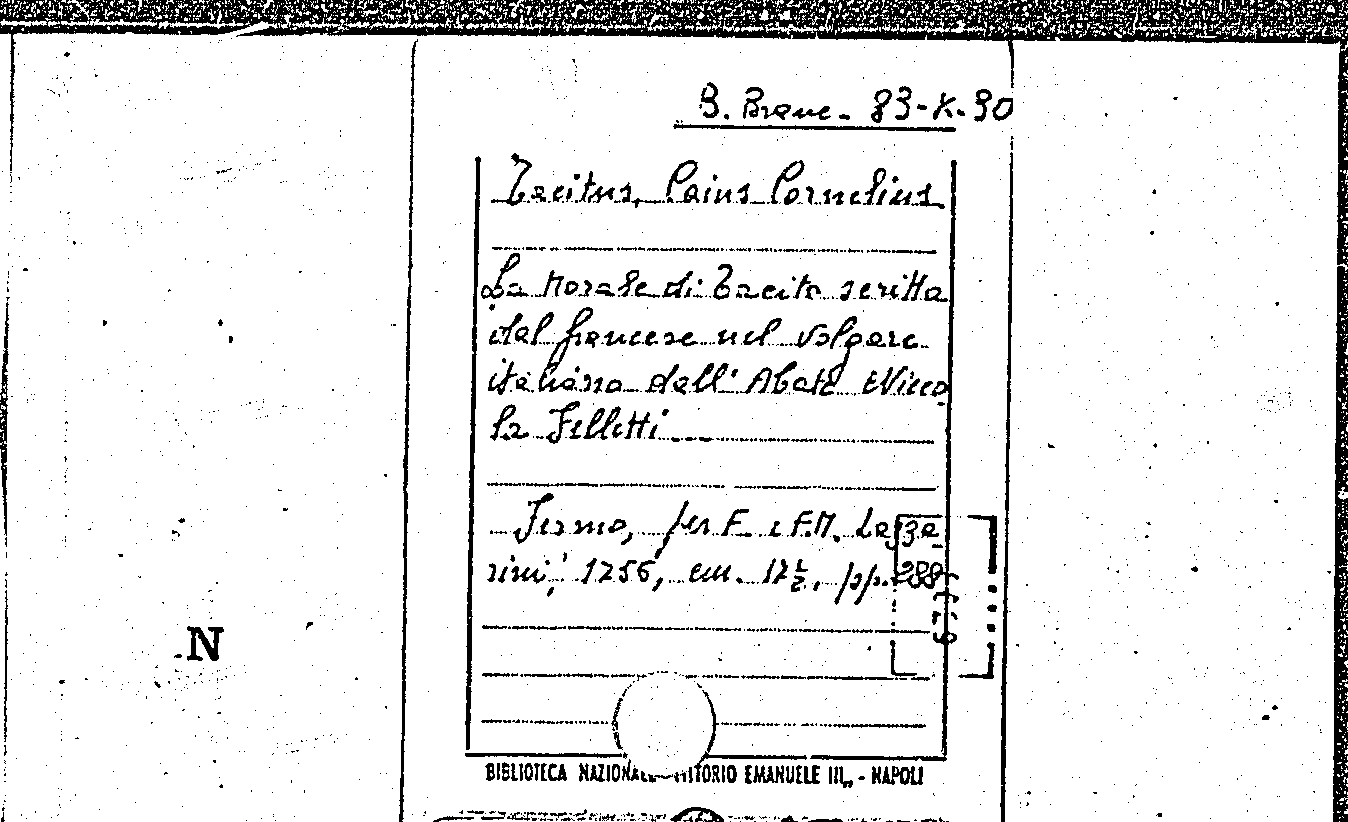 B. Branc. 83-K-30
Tacitus, Caius Cornelius
La Morale di Tacito scritta
dal francese nel volgare
italiano dall' Abate Nicco
la Felletti
Fermo, per F. e F.M. Lazza
rini, 1756, cm. 17½, pp. 288
N
BIBLIOTECA NAZIONALE VITTORIO EMANUELE III„ - NAPOLI